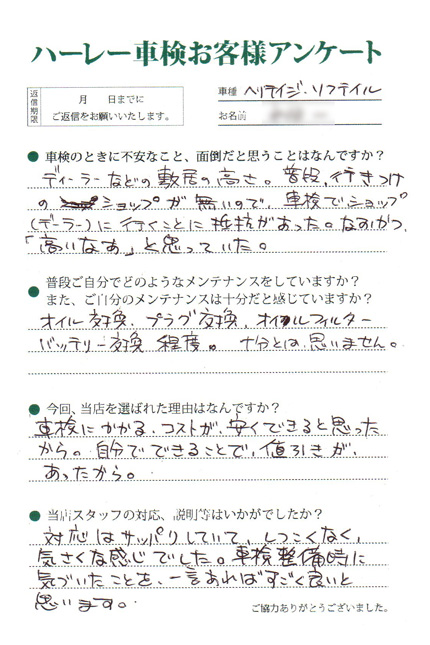 ハーレー車検お客様アンケート
返信期限
月　　日までに
ご返信をお願いいたします。
車種 ヘリテイジ・ソフテイル
お名前
● 車検のときに不安なこと、面倒だと思うことはなんですか？
ディーラーなどの敷居の高さ。普段、行きつけ
の ショップが無いので、車検でショップ
(デーラー)に行くことに抵抗があった。なおかつ、
「高いなあ」と思っていた。
● 普段ご自分でどのようなメンテナンスをしていますか？
また、ご自分のメンテナンスは十分だと感じていますか？
オイル交換、プラグ交換、オイルフィルター
バッテリー交換 程度。 十分とは、思いません。
● 今回、当店を選ばれた理由はなんですか？
車検にかかる、コストが、安くできると思った
から。自分でできることで、値引きが、
あったから。
● 当店スタッフの対応、説明等はいかがでしたか？
対応はサッパリしていて、しつこくなく、
気さくな感じでした。車検整備時に
気づいたことを、一言あればすごく良いと
思います。
ご協力ありがとうございました。